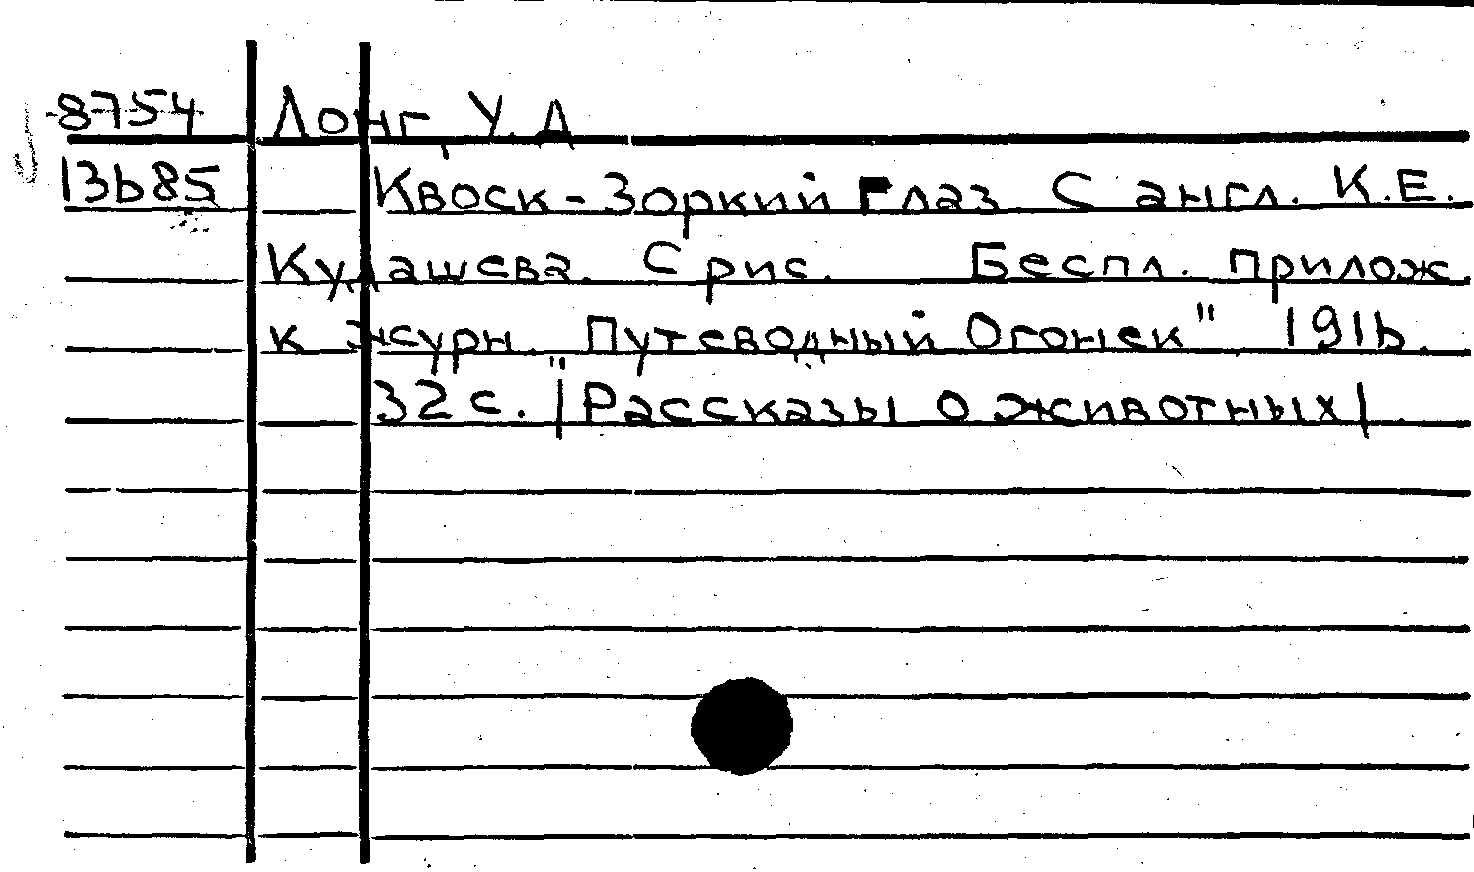 8754 Лонг, У. Д
13b85 Квоск-Зоркий Глаз С англ. К.Е.
Кудашева. С рис. Беспл. прилож.
к журн. "Путеводный Огонек" 191b.
32 с. |Рассказы о животных|.